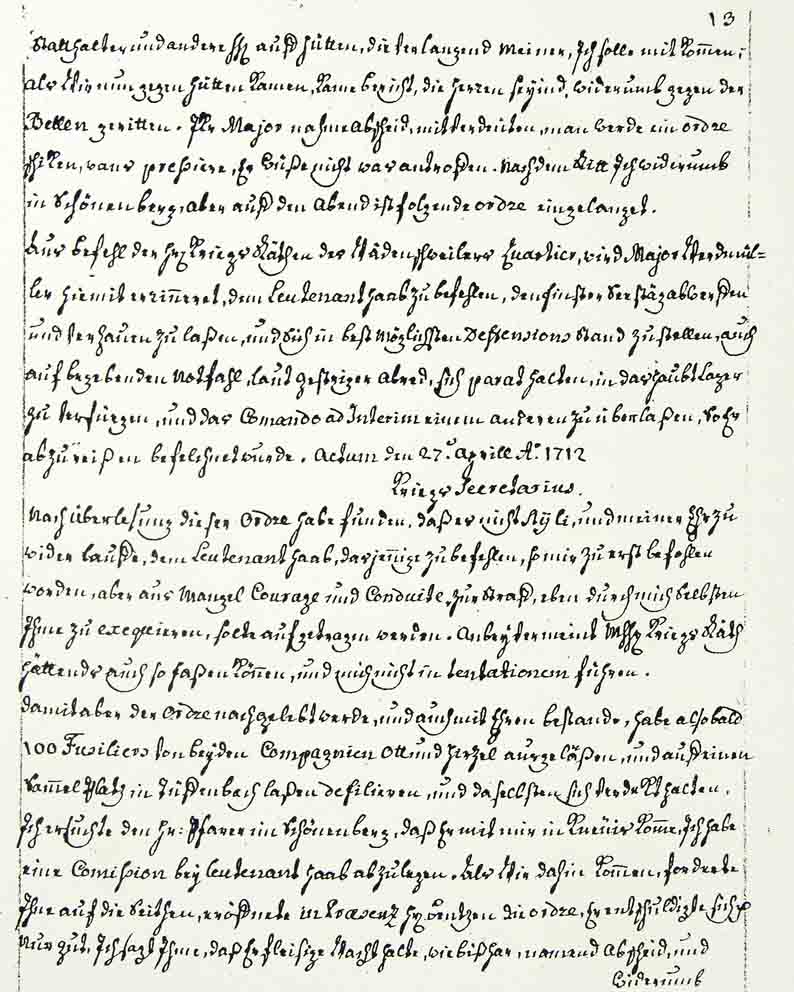 13
Statthalter und andere HH auff Hütten, die verlangend meiner, Ich solle mit kom̄en;
als Wir nun gegen Hütten kamen, kame bericht, die Herren seÿind, widerumb gegen der
Bellen geritten. Hr Major nahme abscheid, mit verdeüten, man werde ein ordre
schiken, wans pressiere, Er wüße nicht was antroffen. Nach dem Ritt Ich widerumb
in Schönenberg, aber auff den Abend ist folgende ordre eingelanget.
Aus befehl der Hrn Kriegs Räthen des Wädenschweilers Quartier, wird Major Werdmül=
ler hiemit erin̄eret, dem Leutenant Haab zu befehlen, den finsteren
und verhauen zu laßen, und Sich in best Möglichsten Deffensions Stand zu stellen, auch
auf begebenden Nothfahl, laut gestriger abred, sich parat halten, in das Haubt Lager
zu verfüegen, und das Com̄ando ad Interim einem anderen zu überlaßen, So Er
abzureißen befelchnet wurde. Actum den 27.t Aprill Ao. 1712
Kriegs Secretarius.
Nach überlesung dieser Ordre habe funden, daß es nicht und meiner Ehr zu
wider lauffe, dem Leutenant Haab, dasjen̄ige zu befehlen, so mir zu erst befohlen
worden, aber aus Mangel Courage und Conduite, zur Straff, eben durch mich Selbsten
Ihme zu exequieren, solte aufgetragen werden. Anbeÿ vermeint Kriegs Räth
hättends auch so faßen kön̄en, und mich nicht in tentationem führen.
damit aber der Ordre nachgelebt werde, und auch mit Ehren bestande, habe also bald
100 Fusiliers von beÿden Compagnien Ott und Hirzel ausgeläßen, und auff einen
Sam̄el Platz in Tüffenbach laßen defilieren, und daselbsten sich verdekt halten.
Ich ersuchte den Hr: Pfarer im Schönenberg, daß Er mit mir in Kom̄e, Ich habe
eine Com̄ißion beÿ Leutenant Haab abzulegen. Als Wir dahin kom̄en, forderte
Ihne auf die Seithen, eröffnete in præsentz Hr die ordre, Er entschuldigte sich
nur gut, Ich sagt Ihme, daß Er fleisige Wacht halte, wie bißhar, namend Abscheid, und
widerumb